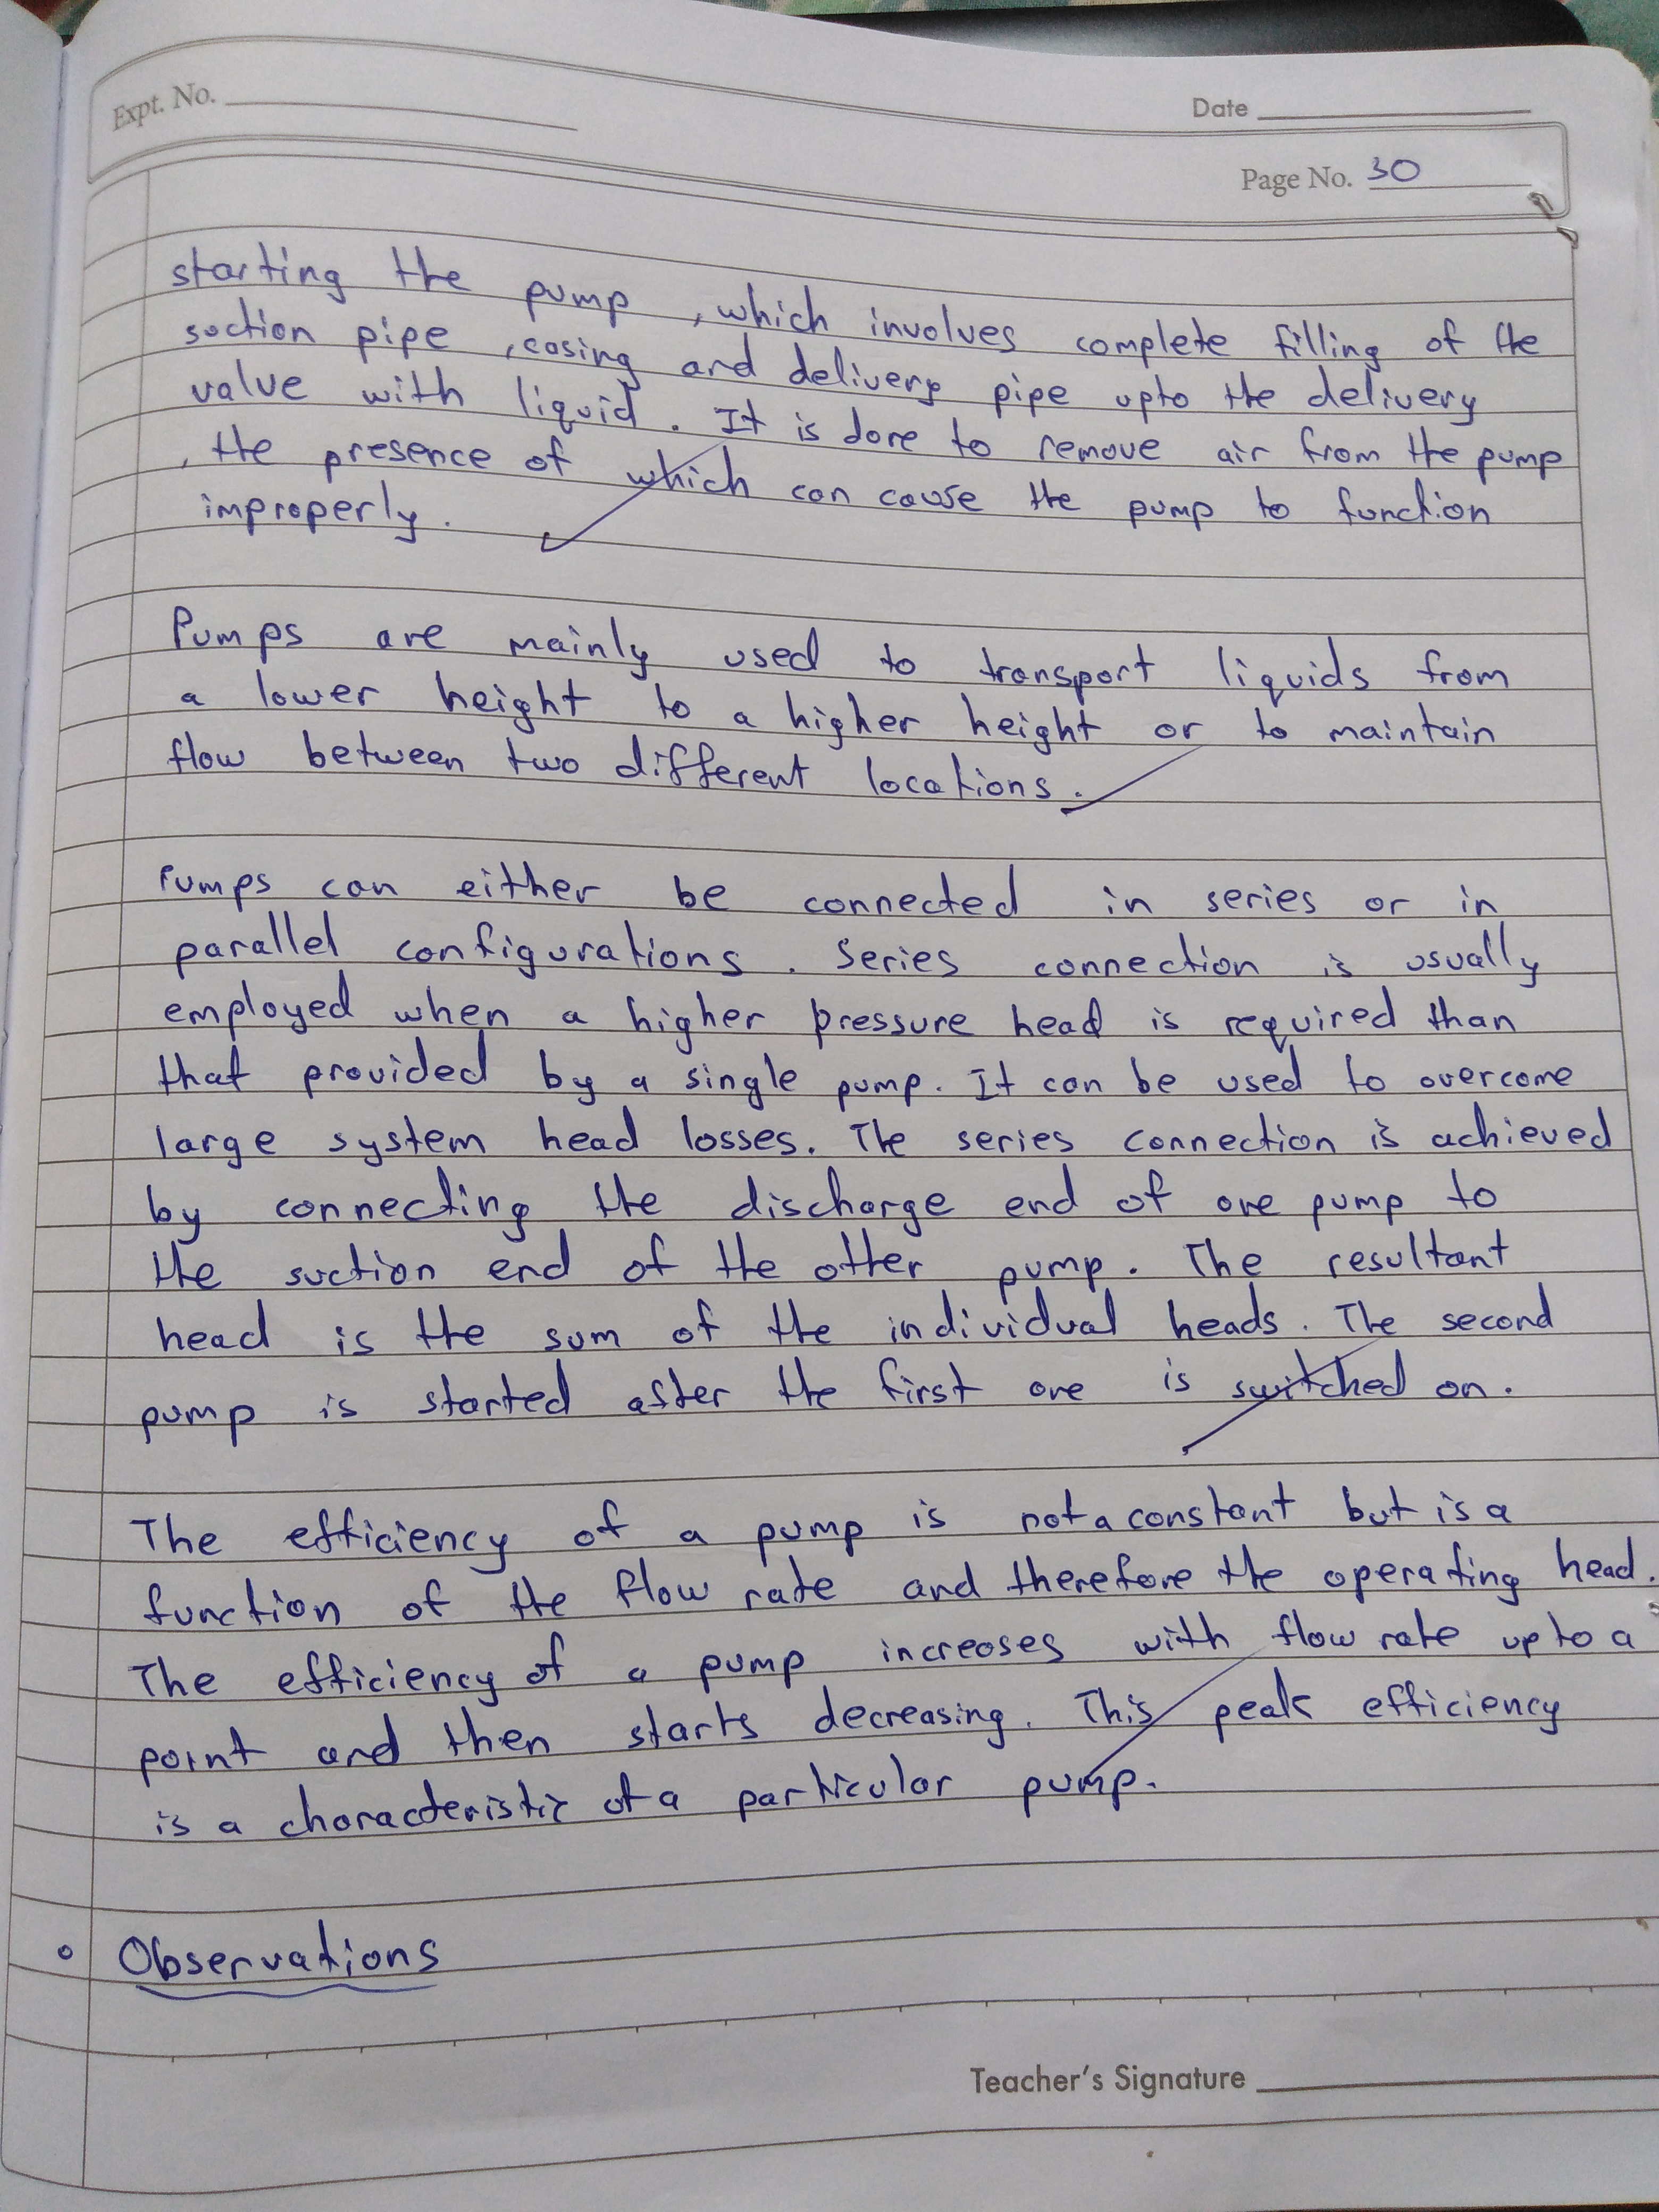 Expt. No.
Date
Page No. 30
starting the pump, which involves complete filling of the
suction pipe, casing and delivery pipe upto the delivery
value with liquid. It is done to remove air from the pump
, the presence of which can cause the pump to function
improperly.
Pumps are mainly used to transport liquids from
a lower height to a higher height or to maintain
flow between two different locations.
Pumps can either be connected in series or in
parallel configurations. Series connection is usually
employed when a higher pressure head is required than
that provided by a single pump. It can be used to overcome
large system head losses. The series connection is achieved
by connecting the discharge end of one pump to
the suction end of the other pump. The resultant
head is the sum of the individual heads. The second
pump is started after the first one is switched on.
The efficiency of a pump is not a constant but is a
function of the flow rate and therefore the operating head.
The efficiency of a pump increases with flow rate upto a
point and then starts decreasing. This peak efficiency
is a characteristic of a particular pump.
Observations
Teacher's Signature